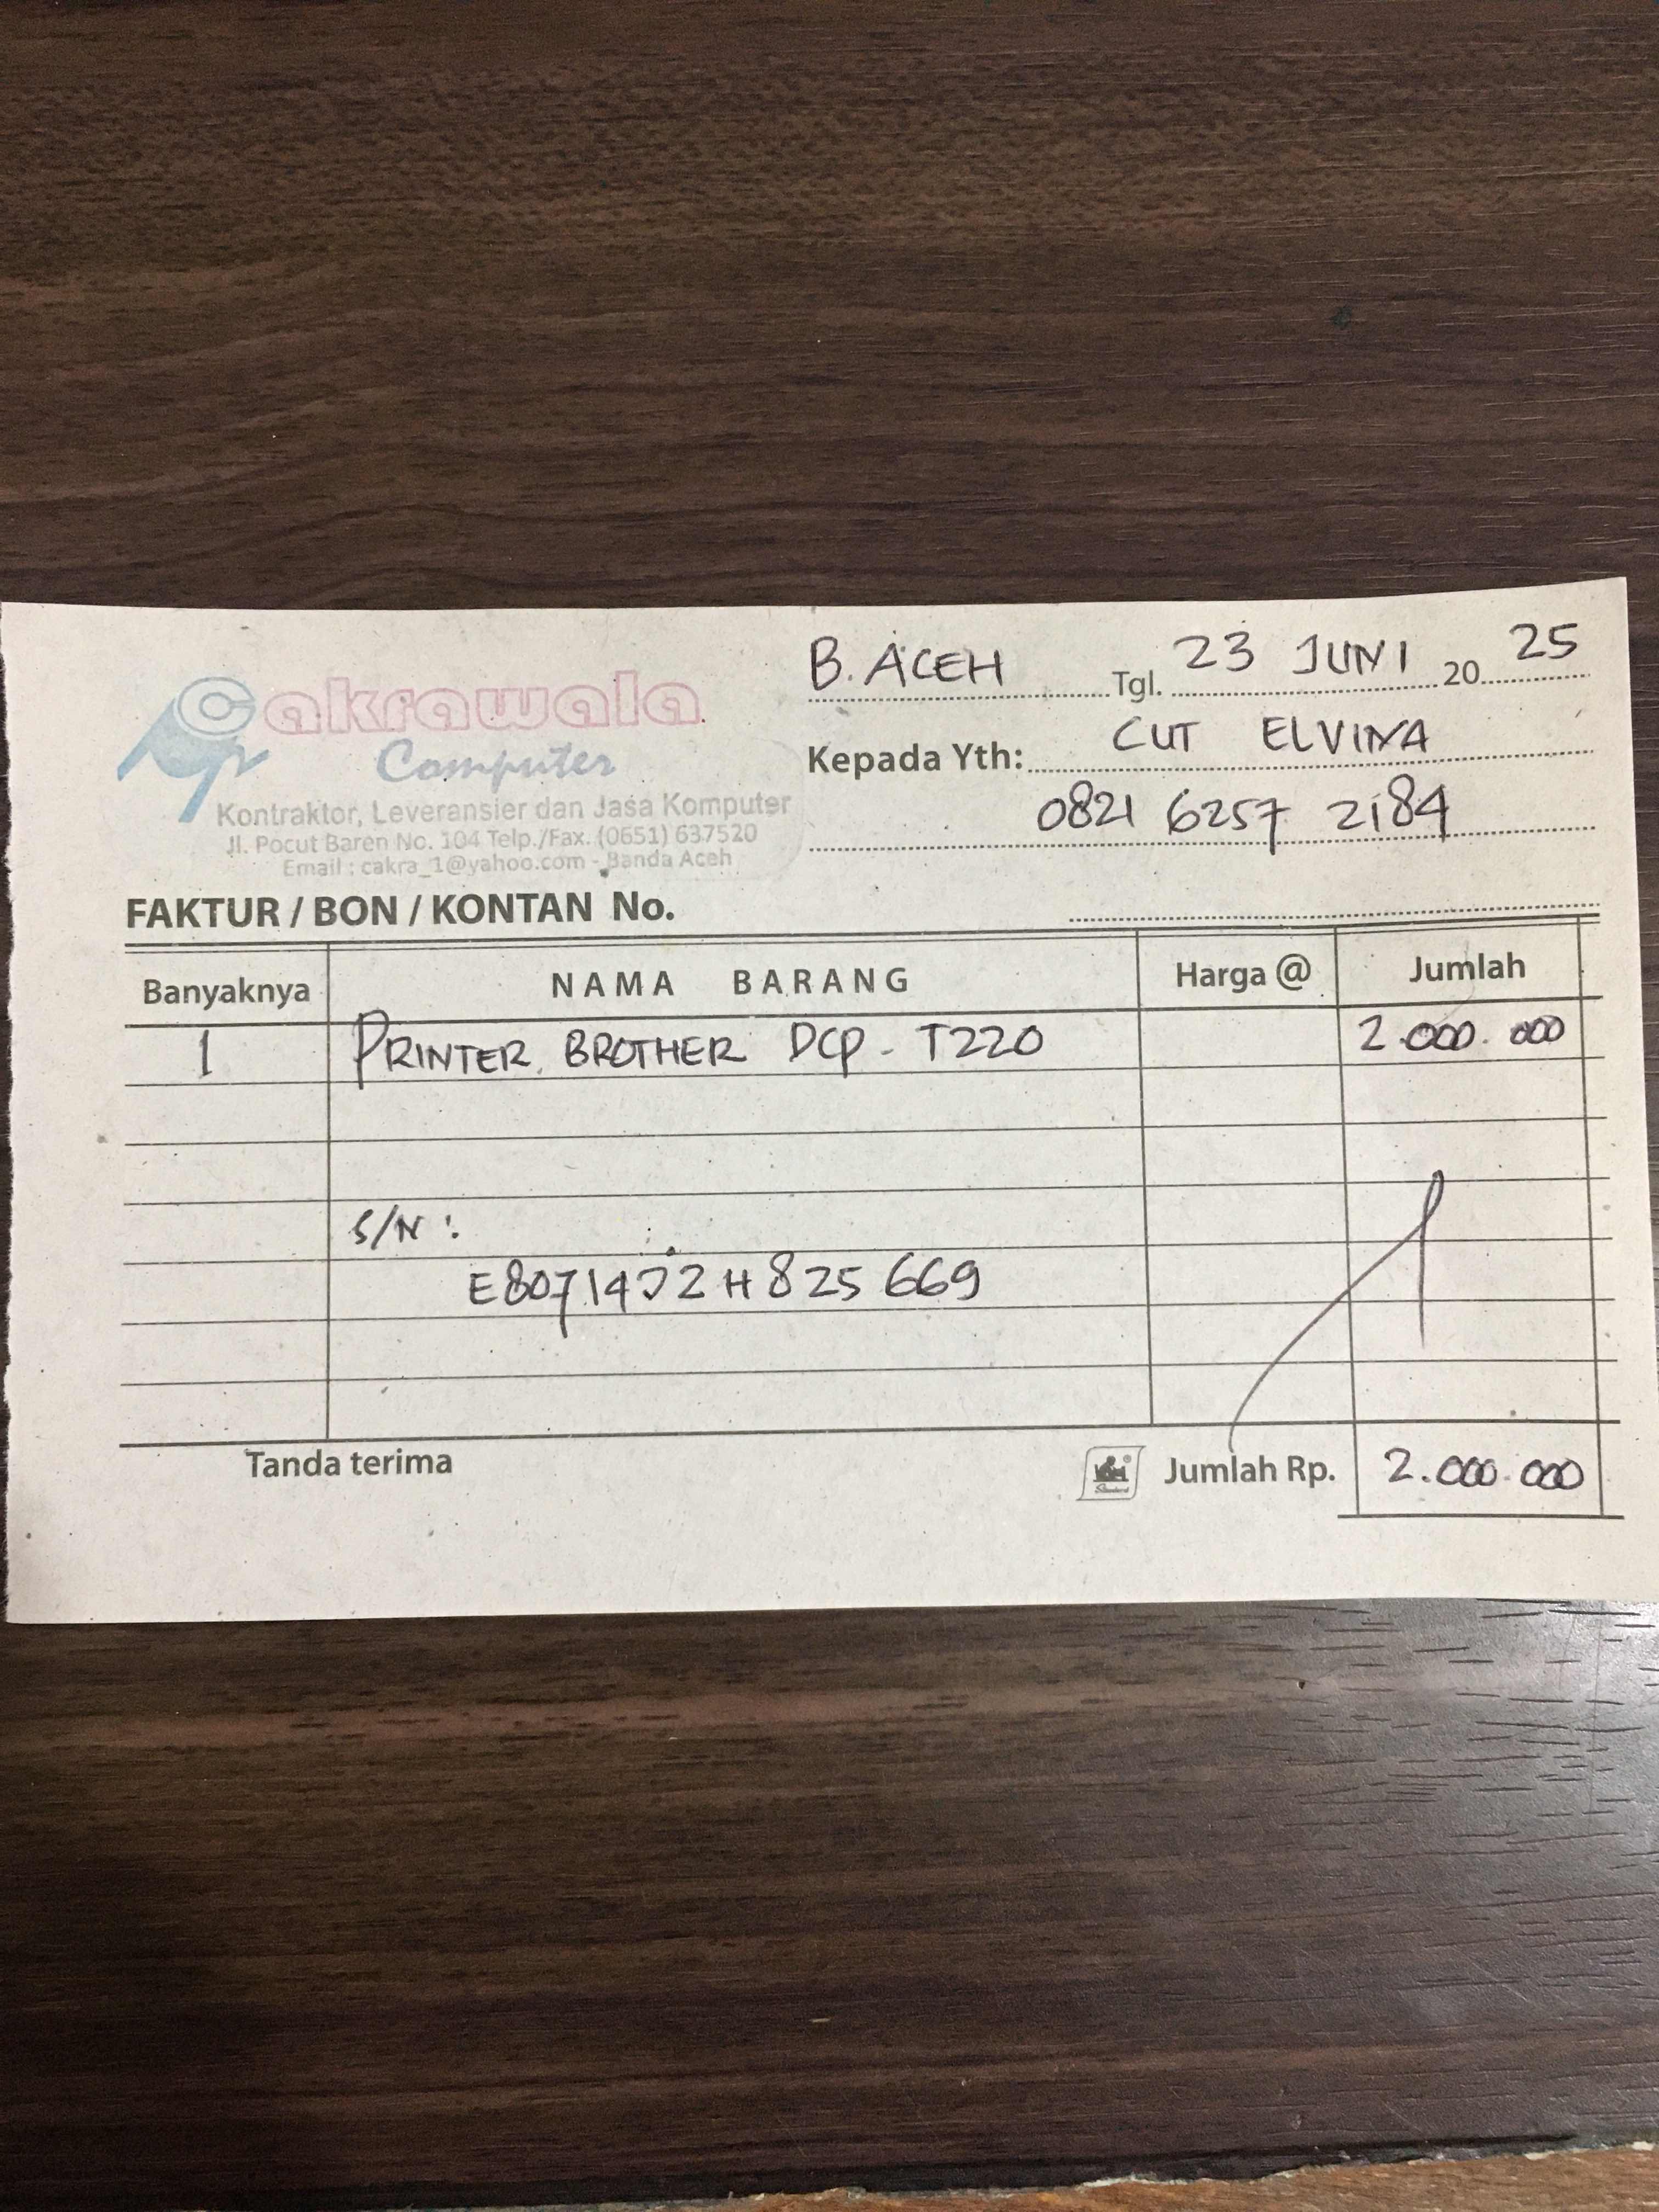 Cakrawala
Computer
Kontraktor, Leveransier dan Jasa Komputer
Jl. Pocut Baren No. 104 Telp./Fax. (0651) 637520
Email : cakra_1@yahoo.com - Banda Aceh
B. ACEH Tgl. 23 JUNI 20 25
Kepada Yth: CUT ELVINA
0821 6257 2184
FAKTUR / BON / KONTAN No.
Banyaknya NAMA BARANG Harga @ Jumlah
1 PRINTER BROTHER DCP - T220 2.000.000
S/N :
E80714J2H825669
Tanda terima Jumlah Rp. 2.000.000